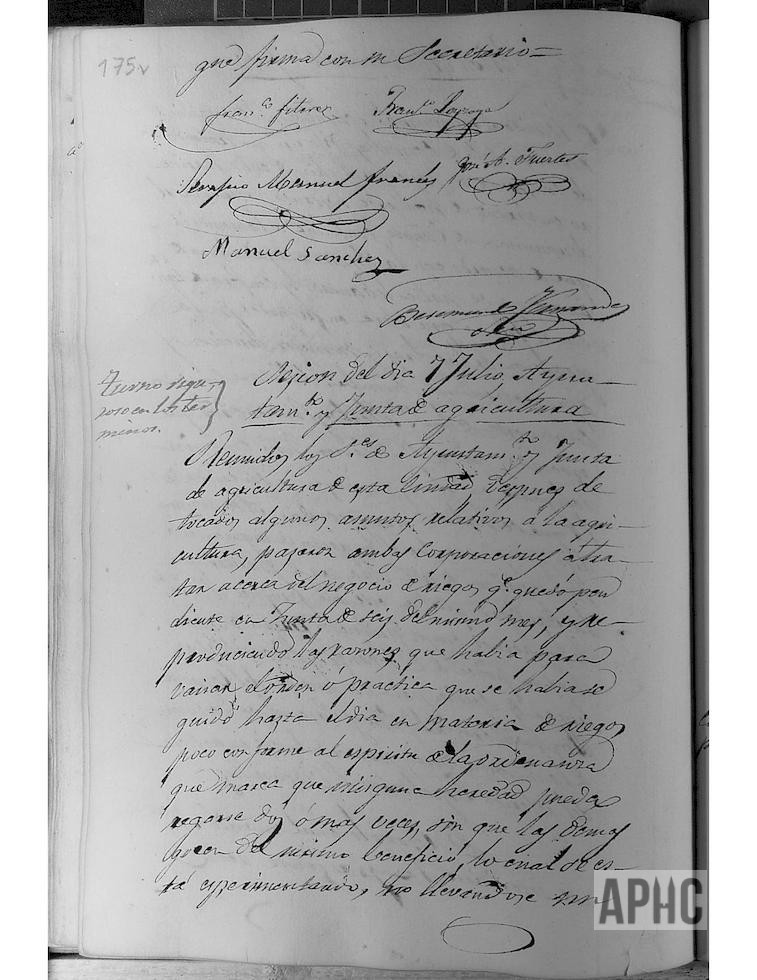 175v
que firma con mi Secretario =
Fran.co
Serapio Manuel Francés José A. Fuertes
Manuel Sanchez
Turno rigu-
roso en los ter
minos.
Sesion del dia 7 Julio, Ayun-
tam.to y Junta de agricultura
Reunidos los S.es de Ayuntam.to y Junta
de agricultura de esta Ciudad, despues de
tocados algunos asuntos relativos á la agri-
cultura, pasaron ambas Corporaciones á tra-
tar acerca del negocio de riegos q.e quedó pen
diente en Junta de seis del mismo mes, y re-
produciendo las razones que habia para
variar el orden ó practica que se habia se
guido hasta el dia en materia de riegos
poco conforme al espiritu de la ordenanza
que marca que ninguna heredad pueda
regarse dos ó mas veces sin que las demas
gocen del mismo beneficio, lo cual se es-
tá esperimentando, no llevandose un
APHC